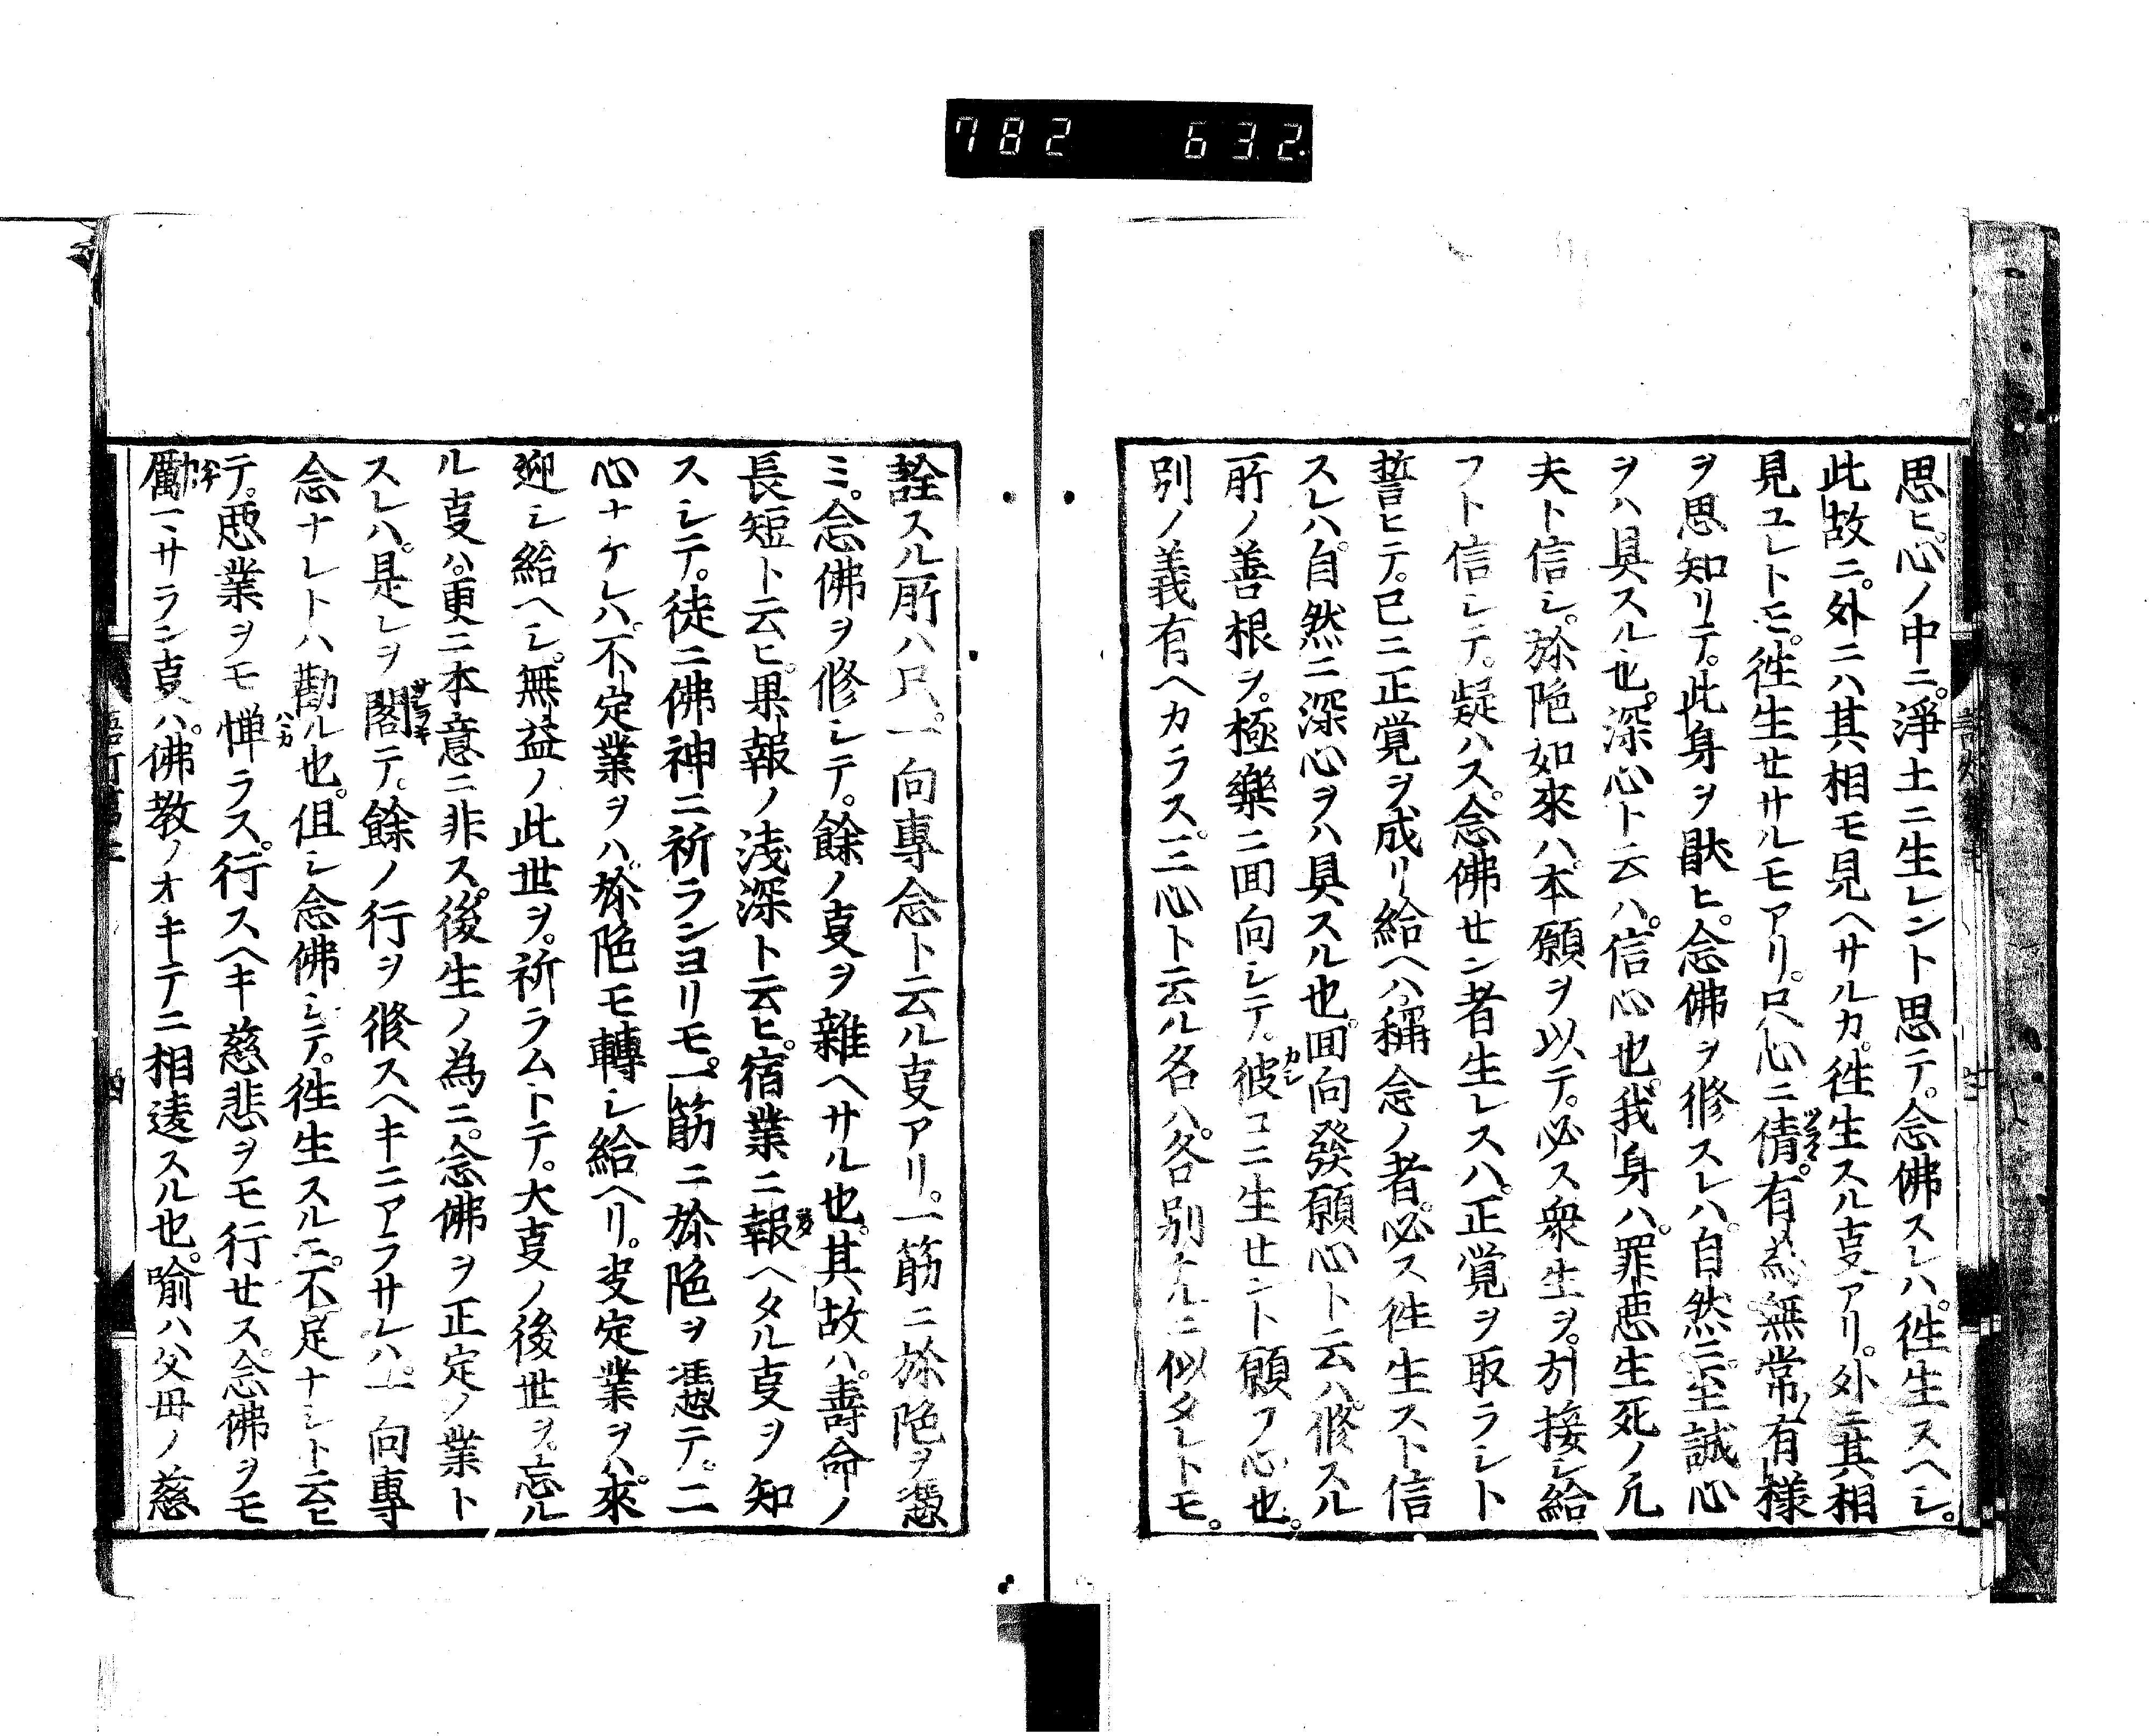 782 632
思ヒ。心ノ中ニ。淨土ニ生レント思テ。念佛スレハ。往生スヘシ。
此故ニ。外ニハ其相モ見ヘサルカ。往生スル叓アリ。外ニ其相
見ユレトモ。往生セサルモアリ。只心ニ倩。有為無常ノ有様
ヲ思知リテ。此身ヲ猒ヒ。念佛ヲ修スレハ。自然ニ。至誠心
ヲハ具スル也。深心ト云ハ。信心也。我身ハ。罪悪生死ノ凢
夫ト信シ。弥陁如來ハ。本願ヲ以テ。必ス衆生ヲ。引接シ給
フト信シテ。疑ハス。念佛セン者生レスハ。正覚ヲ取ラシト
誓ヒテ。已ニ正覚ヲ成リ給ヘハ。稱念ノ者。必ス往生スト信
スレハ。自然ニ深心ヲハ具スル也。回向發願心ト云ハ。修スル
所ノ善根ヲ。極樂ニ回向シテ。彼コニ生セント願フ心也。
別ノ義有ヘカラス。三心ト云ル名ハ。各別ナルニ似タレトモ。
詮スル所ハ只。一向專念ト云ル叓アリ。一筋ニ弥陁ヲ憑
ミ。念佛ヲ修シテ。餘ノ叓ヲ雜ヘサル也。其故ハ。壽命ノ
長短ト云ヒ。果報ノ淺深ト云ヒ。宿業ニ報ヘタル叓ヲ知
スシテ。徒ニ佛神ニ祈ランヨリモ。一筋ニ弥陁ヲ憑テ。二
心ナケレハ。不定業ヲハ。弥陁モ轉シ給ヘリ。决定業ヲハ。來
迎シ給ヘシ。無益ノ此世ヲ。祈ラムトテ。大叓ノ後世ヲ。忘ル
ル叓ハ。更ニ本意ニ非ス。後生ノ為ニ。念佛ヲ正定ノ業ト
スレハ。是レヲ閣テ。餘ノ行ヲ修スヘキニアラサレハ。一向專
念ナレトハ勸ル也。但シ念佛シテ。往生スルニ。不足ナシト云ヒ
テ。悪業ヲモ憚ラス。行スヘキ慈悲ヲモ行セス。念佛ヲモ
勵マサラン叓ハ。佛教ノオキテニ相違スル也。喻ハ父母ノ慈